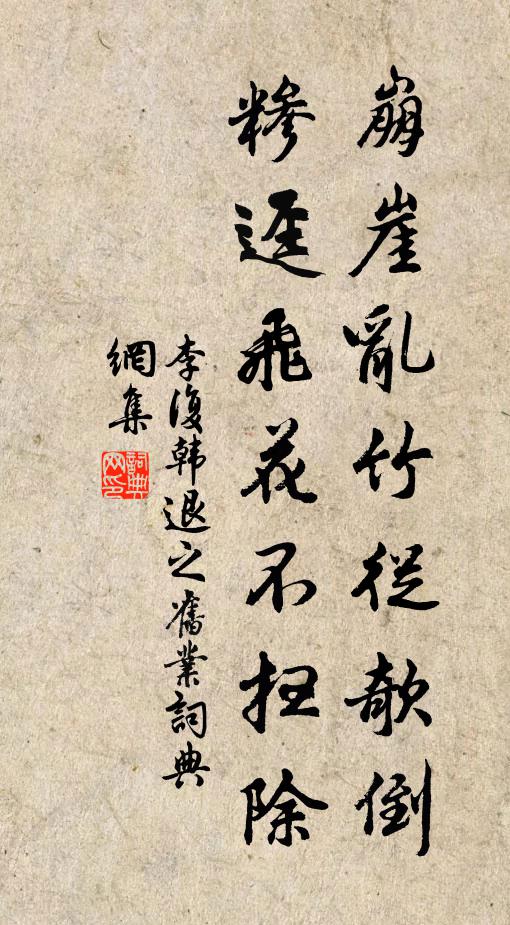 崩崖亂竹從欹倒
糝逕飛花不扫除
李復韩退之舊業詞典
網集
詞典網印